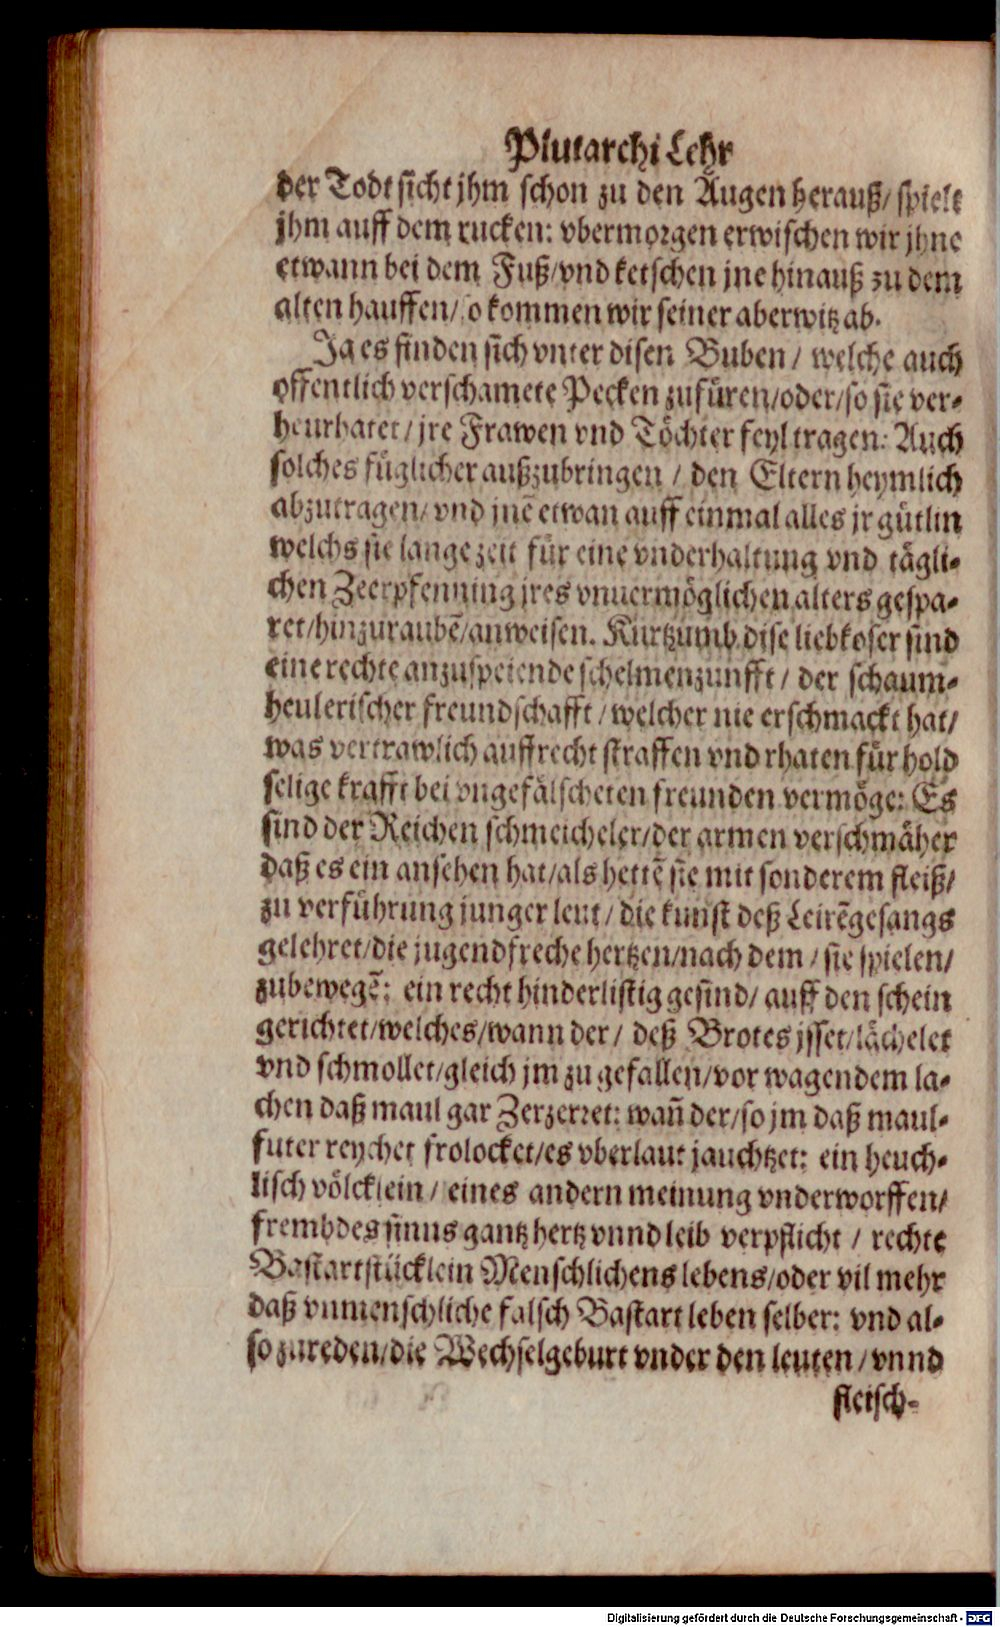 Plutarchi Lehr
der Todt sicht jhm schon zu den Augen herauß/ spielt
jhm auff dem rucken: vbermorgen erwischen wir jhne
etwann bei dem Fuß/ vnd ketschen jne hinauß zu dem
alten hauffen/ so kommen wir seiner aberwitz ab.
Ja es finden sich vnter disen Buben / welche auch
offentlich verschamete Pecken zufüren/oder/so sie ver-
heurhatet / jre Frawen vnd Töchter feyl tragen: Auch
solches füglicher außzubringen / den Eltern heymlich
abzutragen/ vnd jnē etwan auff einmal alles jr gütlin
welchs sie lange zeit für eine vnderhaltung vnd tägli-
chen Zeerpfenning jres vnuermöglichen alters gespa-
ret/hinzuraubē/anweisen. Kurtzumb dise liebkoser sind
eine rechte anzuspeiende schelmenzunfft / der schaum-
heulerischer freundschafft / welcher nie erschmackt hat/
was vertrawlich auffrecht straffen vnd rhaten für hold
selige krafft bei vngefälscheten freunden vermöge: Es
sind der Reichen schmeicheler/der armen verschmäher
daß es ein ansehen hat/als hettē sie mit sonderem fleiß/
zu verführung junger leut / die kunst deß Leirēgesangs
gelehret/die jugendfreche hertzen/nach dem / sie spielen/
zubewegē: ein recht hinderlistig gesind/ auff den schein
gerichtet/welches/wann der / deß Brotes jsset/lächelet
vnd schmollet/gleich jm zu gefallen/vor wagendem la-
chen daß maul gar Zerzerret: wañ der/so jm daß maul-
futer reychet frolocket/es vberlaut jauchtzet: ein heuch-
lisch völcklein / eines andern meinung vnderworffen/
frembdes sinns gantz hertz vnnd leib verpflicht / rechte
Bastartstücklein Menschlichens lebens/oder vil mehr
daß vnmenschliche falsch Bastart leben selber: vnd al-
so zureden/die Wechselgeburt vnder den leuten / vnnd
fleisch-
Digitalisierung gefördert durch die Deutsche Forschungsgemeinschaft - DFG